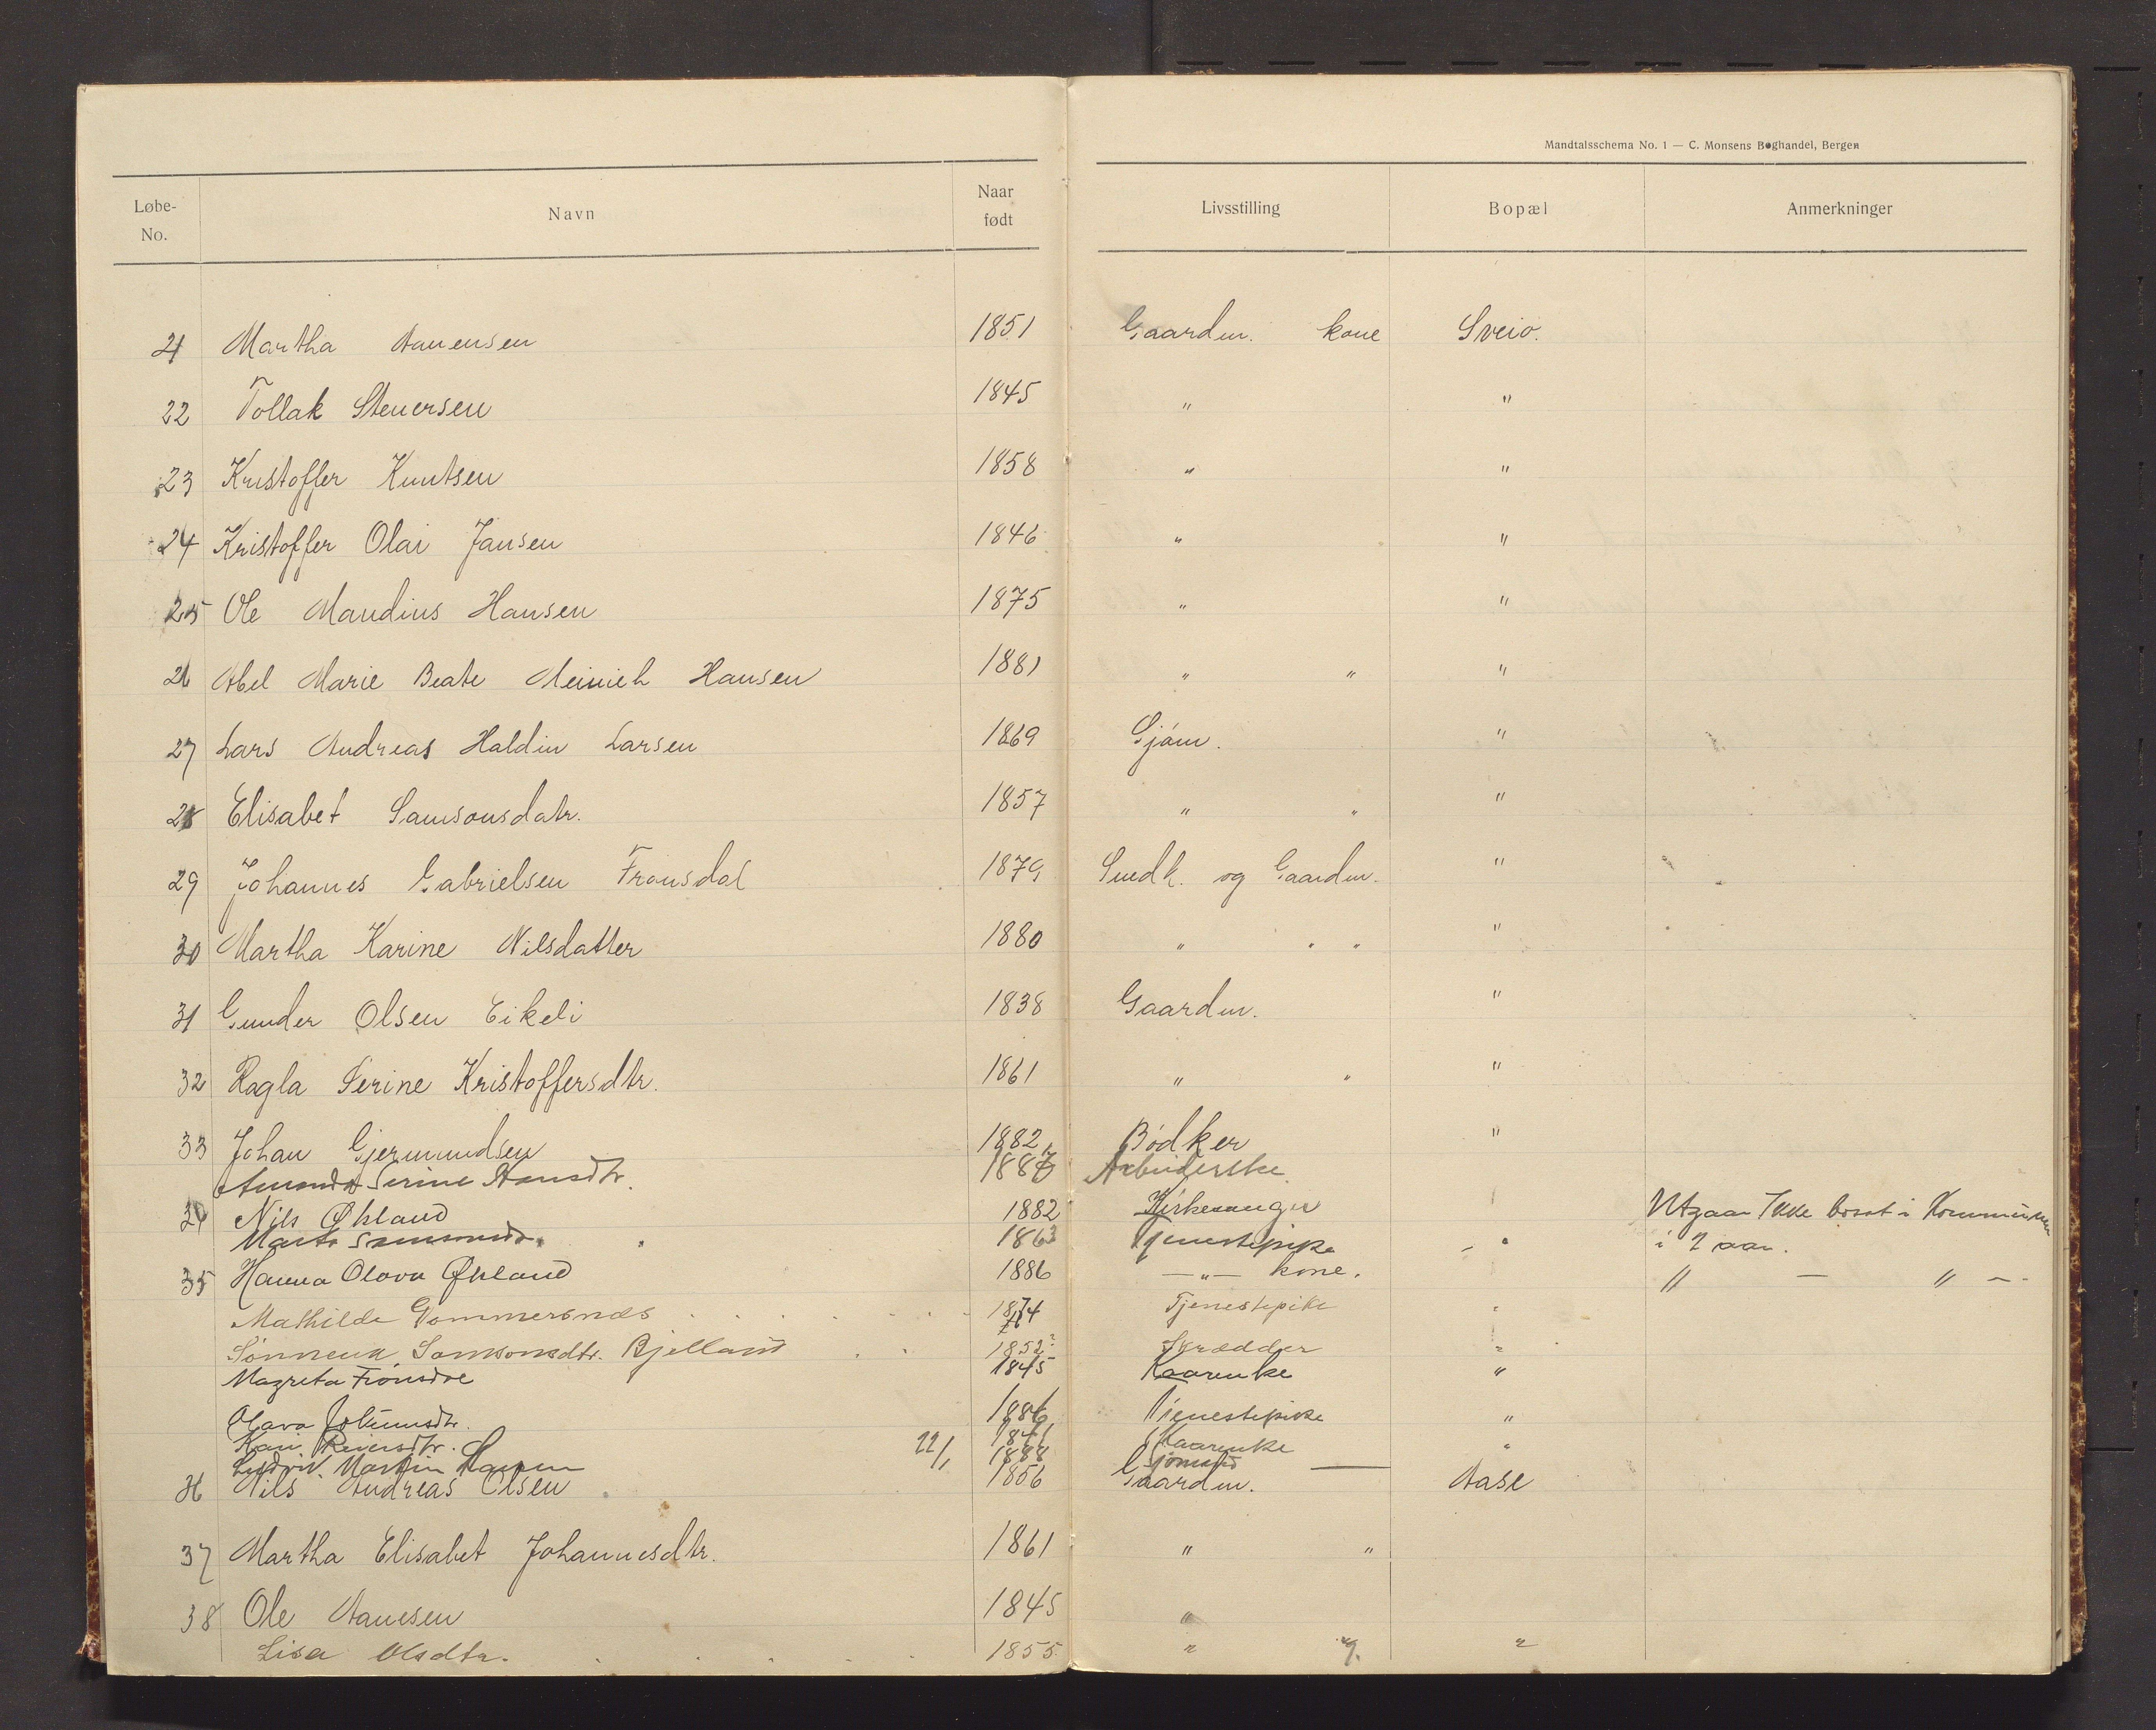 Mandtalsschema No. 1 — C. Monsens Boghandel, Bergen
Løbe-No. Navn Naar født Livsstilling Bopæl Anmerkninger
21 Martha Aanensen 1851 Gaardm. kone Sveio.
22 Tollak Stenersen 1845 " "
23 Kristoffer Knutsen 1858 " "
24 Kristoffer Olai Jansen 1846 " "
25 Ole Mandius Hansen 1875 " "
26 Abel Marie Beate Meinich Hansen 1881 " " "
27 Lars Andreas Haldin Larsen 1869 Sjøm. "
28 Elisabet Samsonsdatr. 1857 " " "
29 Johannes Gabrielsen Fronsdal 1879 Smedh. og Gaardm. "
30 Martha Karine Nilsdatter 1880 " " " "
31 Gunder Olsen Eikeli 1838 Gaardm. "
32 Ragla Serine Kristoffersdtr. 1861 " " "
33 Johan Gjermundsen 1882 Bödker "
Serine 1887 Arbeiderske
34 Nils Økland 1882 Kirkesanger Utgaar Ikke bosat i Kommunen
Marta 1863 Tjenestepike " i 2 aar.
35 Hanna Olava Økland 1886 — " — kone. " — " —
Mathilde 1874 Tjenestepike "
Samsonsdtr. Bjelland 1852 Skrædder "
Magreta 1845 Kaarenke "
Olava Johannesdtr. 1886 Tjenestepike "
Kari Reiersdtr. 1841 Kaarenke "
Ludvik Martin Hansen 22/1 1888 Sjömand
36 Nils Andreas Olsen 1856 Gaardm. Aase
37 Martha Elisabet Johannesdtr. 1861 " "
38 Ole Aanesen 1845 "
Lisa Olsdtr. 1855 " "